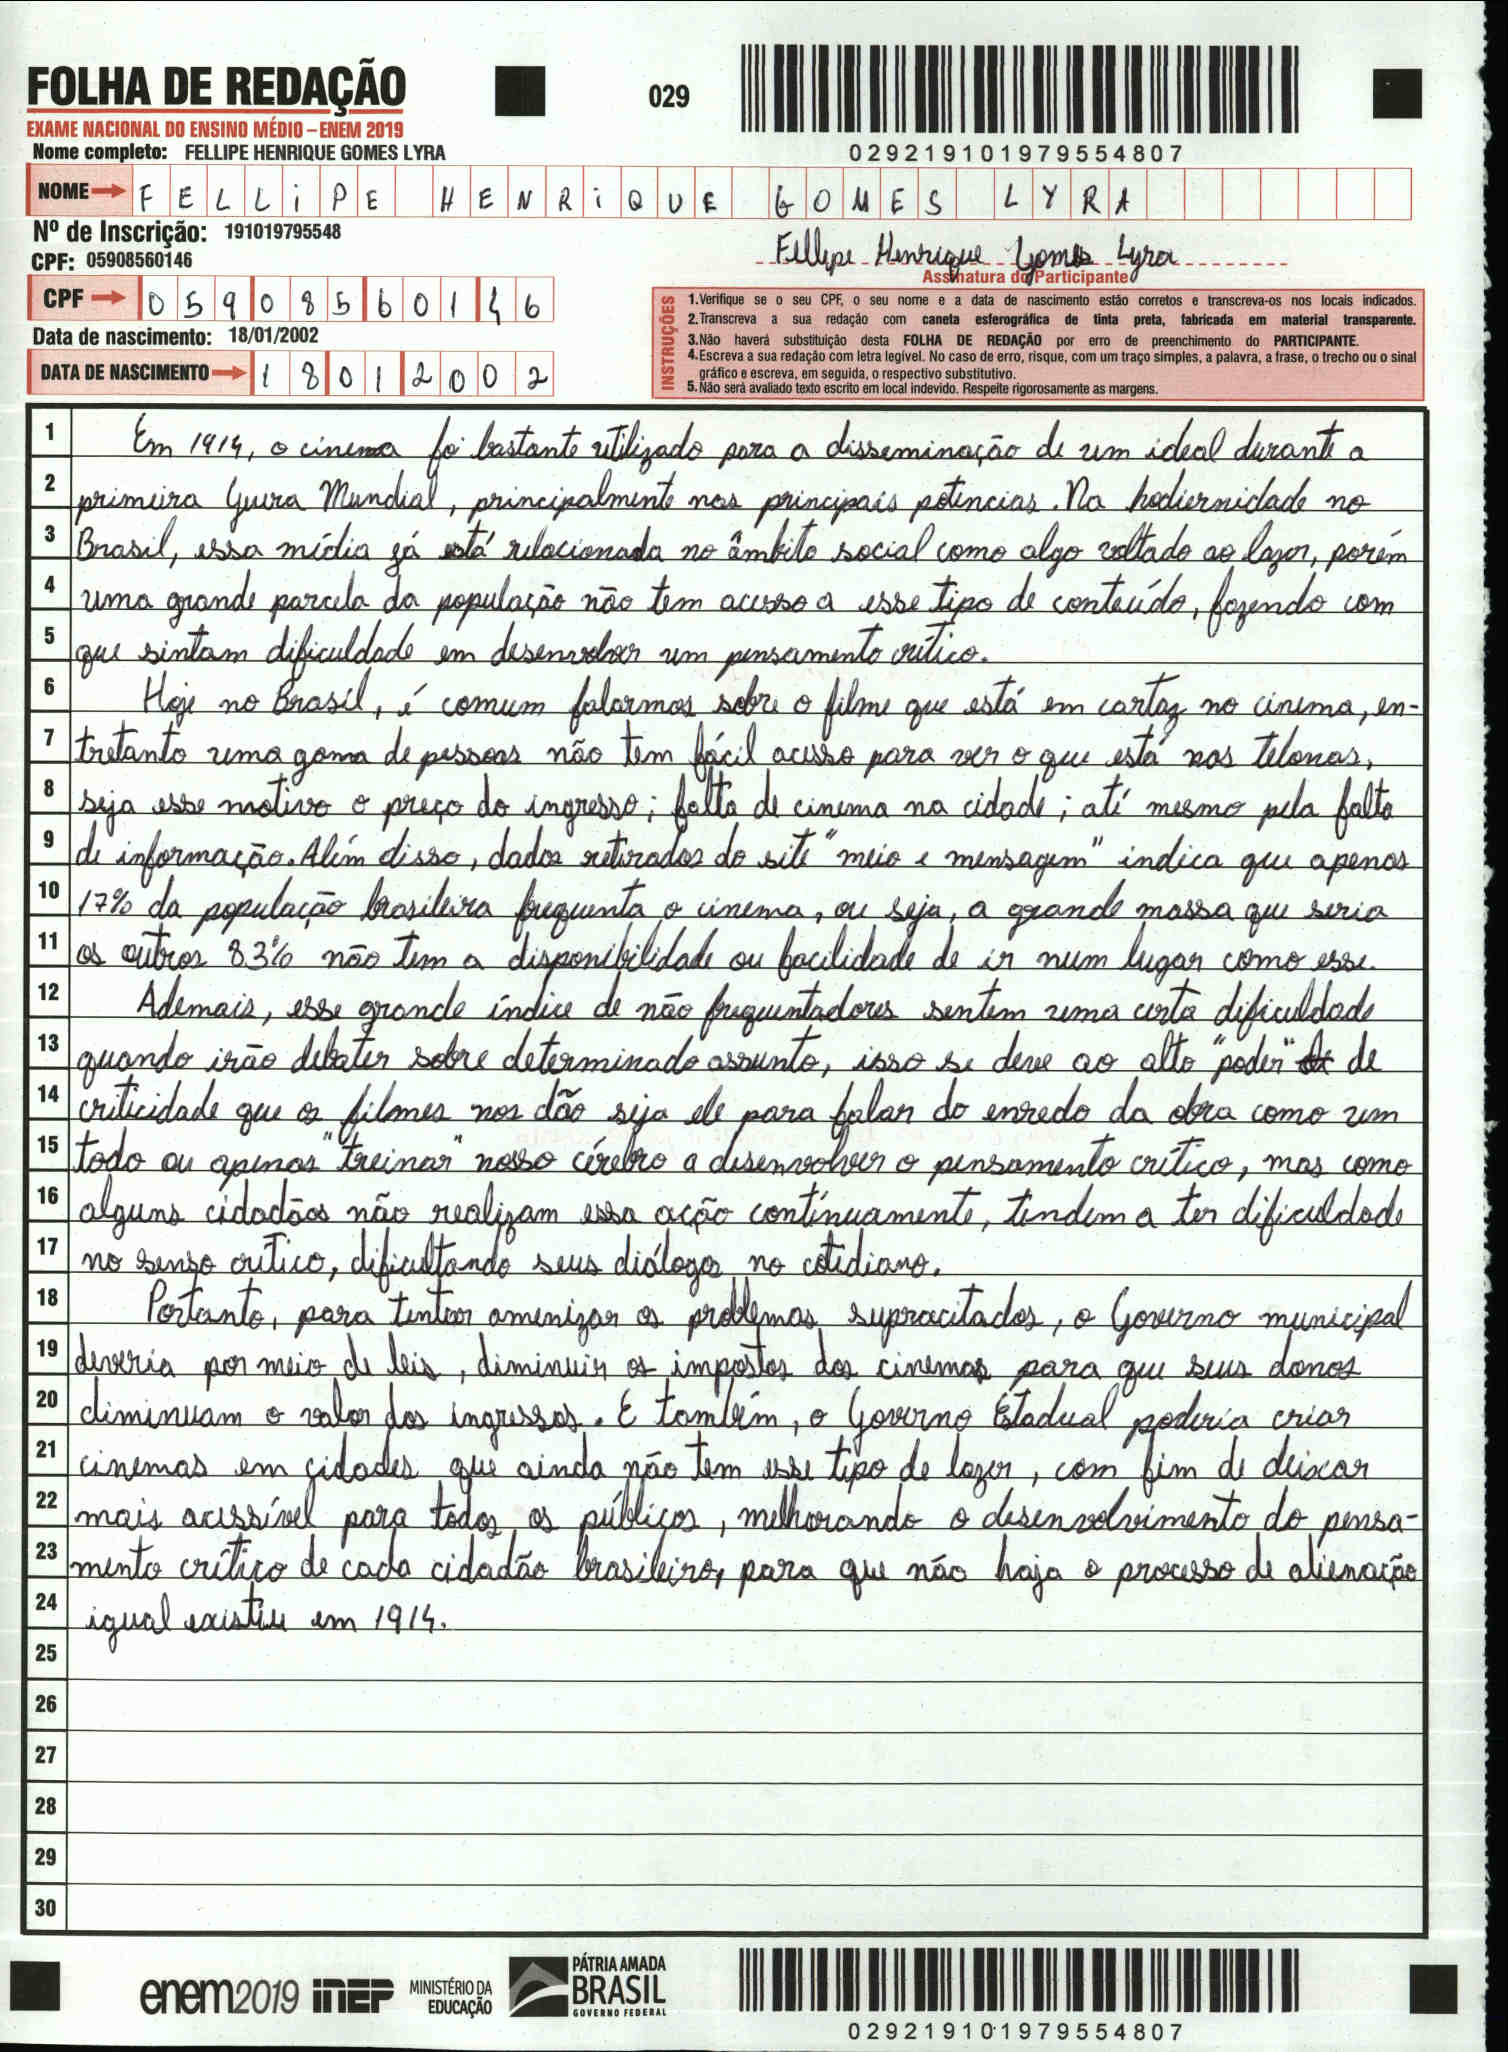 FOLHA DE REDAÇÃO
EXAME NACIONAL DO ENSINO MÉDIO – ENEM 2019
029
029219101979554807
Nome completo: FELLIPE HENRIQUE GOMES LYRA
NOME FELLIPE HENRIQUE GOMES LYRA
Nº de Inscrição: 191019795548
CPF: 05908560146
Fellipe Henrique Gomes Lyra
Assinatura do Participante
CPF 05908560146
Data de nascimento: 18/01/2002
DATA DE NASCIMENTO 18012002
INSTRUÇÕES
1.Verifique se o seu CPF, o seu nome e a data de nascimento estão corretos e transcreva-os nos locais indicados.
2.Transcreva a sua redação com caneta esferográfica de tinta preta, fabricada em material transparente.
3.Não haverá substituição desta FOLHA DE REDAÇÃO por erro de preenchimento do PARTICIPANTE.
4.Escreva a sua redação com letra legível. No caso de erro, risque, com um traço simples, a palavra, a frase, o trecho ou o sinal
gráfico e escreva, em seguida, o respectivo substitutivo.
5.Não será avaliado texto escrito em local indevido. Respeite rigorosamente as margens.
1 Em 1914, o cinema foi bastante utilizado para a disseminação de um ideal durante a
2 primeira Guera Mundial, principalmente nas principais potências. Na hodiernidade no
3 Brasil, essa mídia já está relacionada no âmbito social como algo voltado ao lazer, porém
4 uma grande parcela da população não tem acesso a esse tipo de conteúdo, fazendo com
5 que sintam dificuldade em desenvolver um pensamento crítico.
6 Hoje no Brasil, é comum falarmos sobre o filme que está em cartaz no cinema, en-
7 tretanto uma gama de pessoas não tem fácil acesso para ver o que está nas telonas,
8 seja esse motivo o preço do ingresso; falta de cinema na cidade; até mesmo pela falta
9 de informação. Além disso, dados retirados do site "meio e mensagem" indica que apenas
10 17% da população brasileira frequenta o cinema, ou seja, a grande massa que seria
11 os outros 83% não tem a disponibilidade ou facilidade de ir num lugar como esse.
12 Ademais, esse grande índice de não frequentadores sentem uma certa dificuldade
13 quando irão debater sobre determinado assunto, isso se deve ao alto "poder" de
14 criticidade que os filmes nos dão seja ele para falar do enredo da obra como um
15 todo ou apenas "treinar" nosso cérebro a desenvolver o pensamento crítico, mas como
16 alguns cidadãos não realizam essa ação contínuamente, tendem a ter dificuldade
17 no senso crítico, dificultando seus diálogos no cotidiano.
18 Portanto, para tentar amenizar os problemas supracitados, o Governo municipal
19 deveria por meio de leis, diminuir os impostos dos cinemas para que seus donos
20 diminuam o valor dos ingressos. E também, o Governo Estadual poderia criar
21 cinemas em cidades que ainda não tem esse tipo de lazer, com fim de deixar
22 mais acessível para todos os públicos, melhorando o desenvolvimento do pensa-
23 mento crítico de cada cidadão brasileiro, para que não haja o processo de alienação
24 igual existiu em 1914.
25
26
27
28
29
30
enem2019 inep MINISTÉRIO DA EDUCAÇÃO PÁTRIA AMADA BRASIL GOVERNO FEDERAL
029219101979554807